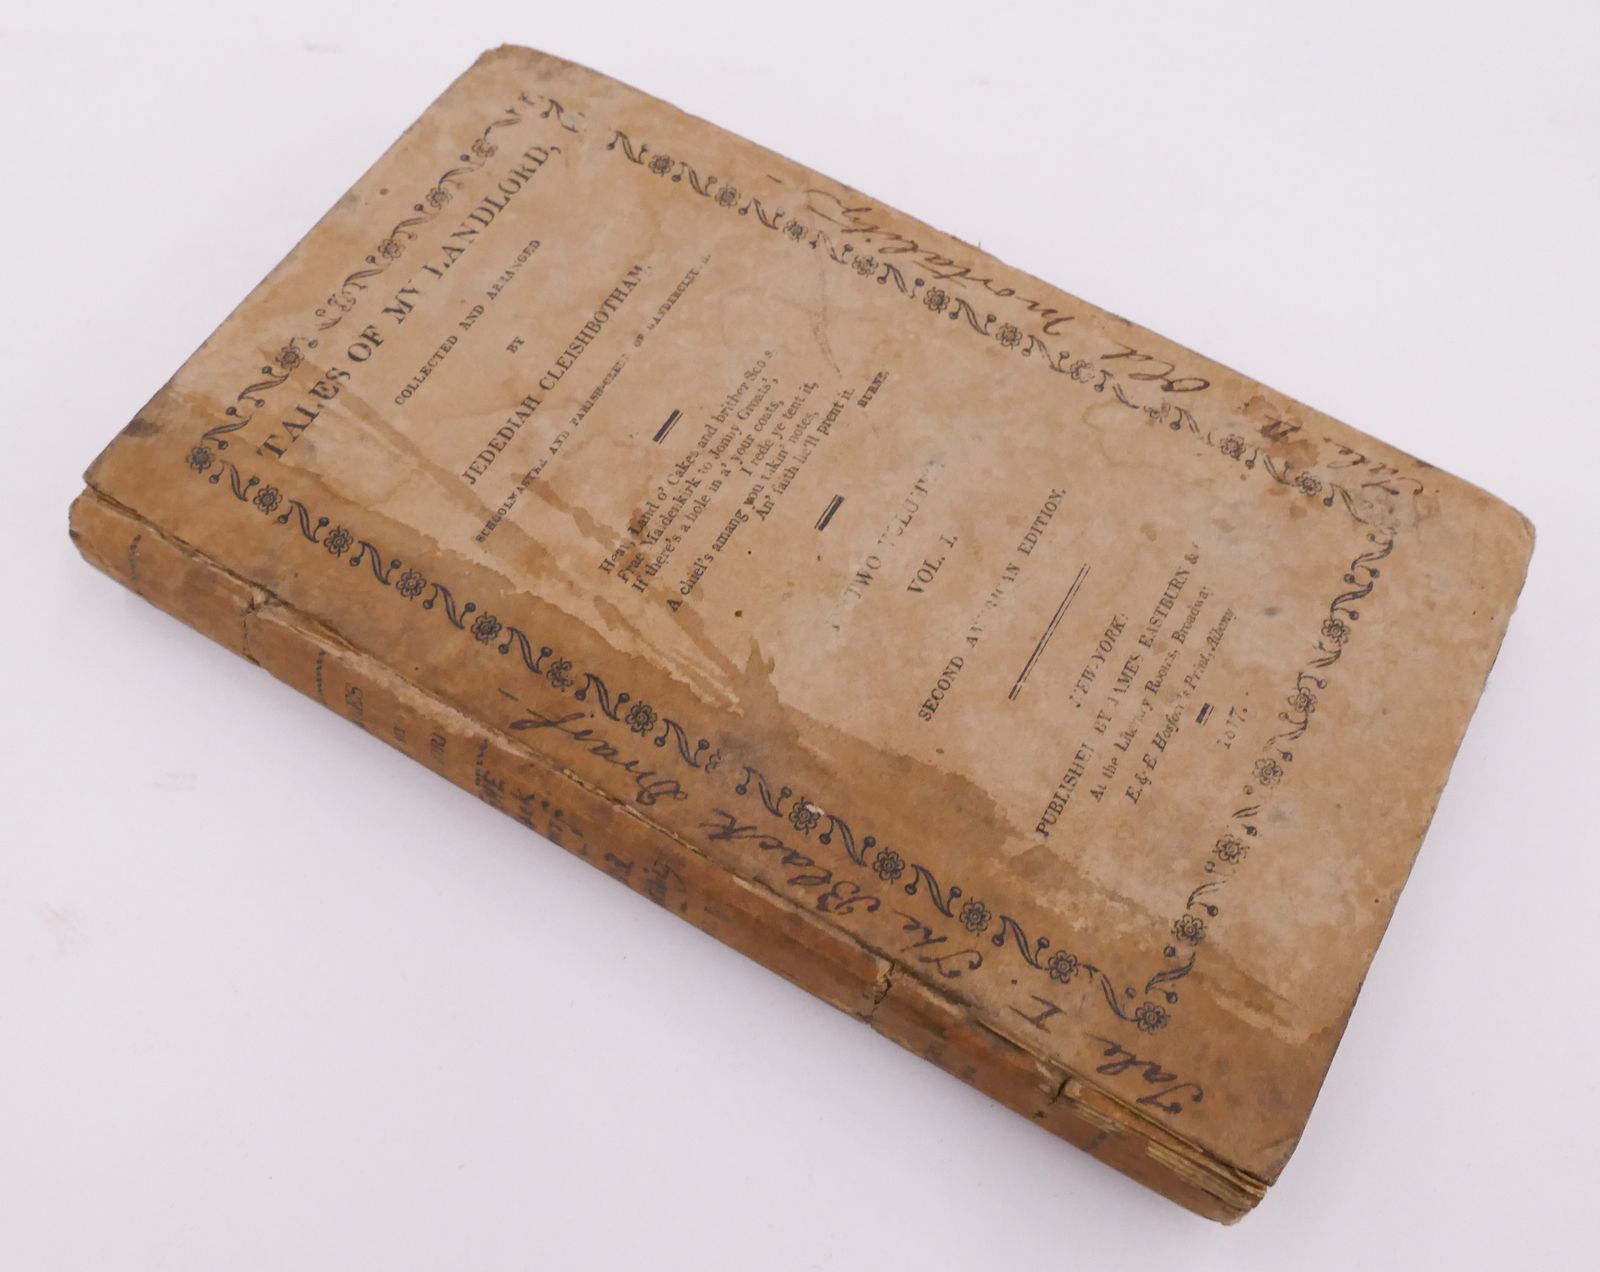 TALES OF MY LANDLORD,
COLLECTED AND ARRANGED
BY
JEDEDIAH CLEISHBOTHAM,
SCHOOLMASTER AND PARISH-CLERK OF GANDERCLEUGH.
Hear, Land o' Cakes and brither Scots,
Frae Maidenkirk to Jonny Groats',
If there's a hole in a' your coats,
I rede ye tent it,
A chiel's amang you takin' notes,
An' faith he'll prent it.
BURNS.
IN TWO VOLUMES
VOL. I.
SECOND AMERICAN EDITION.
NEW-YORK:
PUBLISHED BY JAMES EASTBURN &
At the Literary Rooms, Broadway
E. & E. Hosford's Print, Albany
1817.
Tale I. The Black Dwarf - 1
Tale II Old Mortality -
TALES
OF